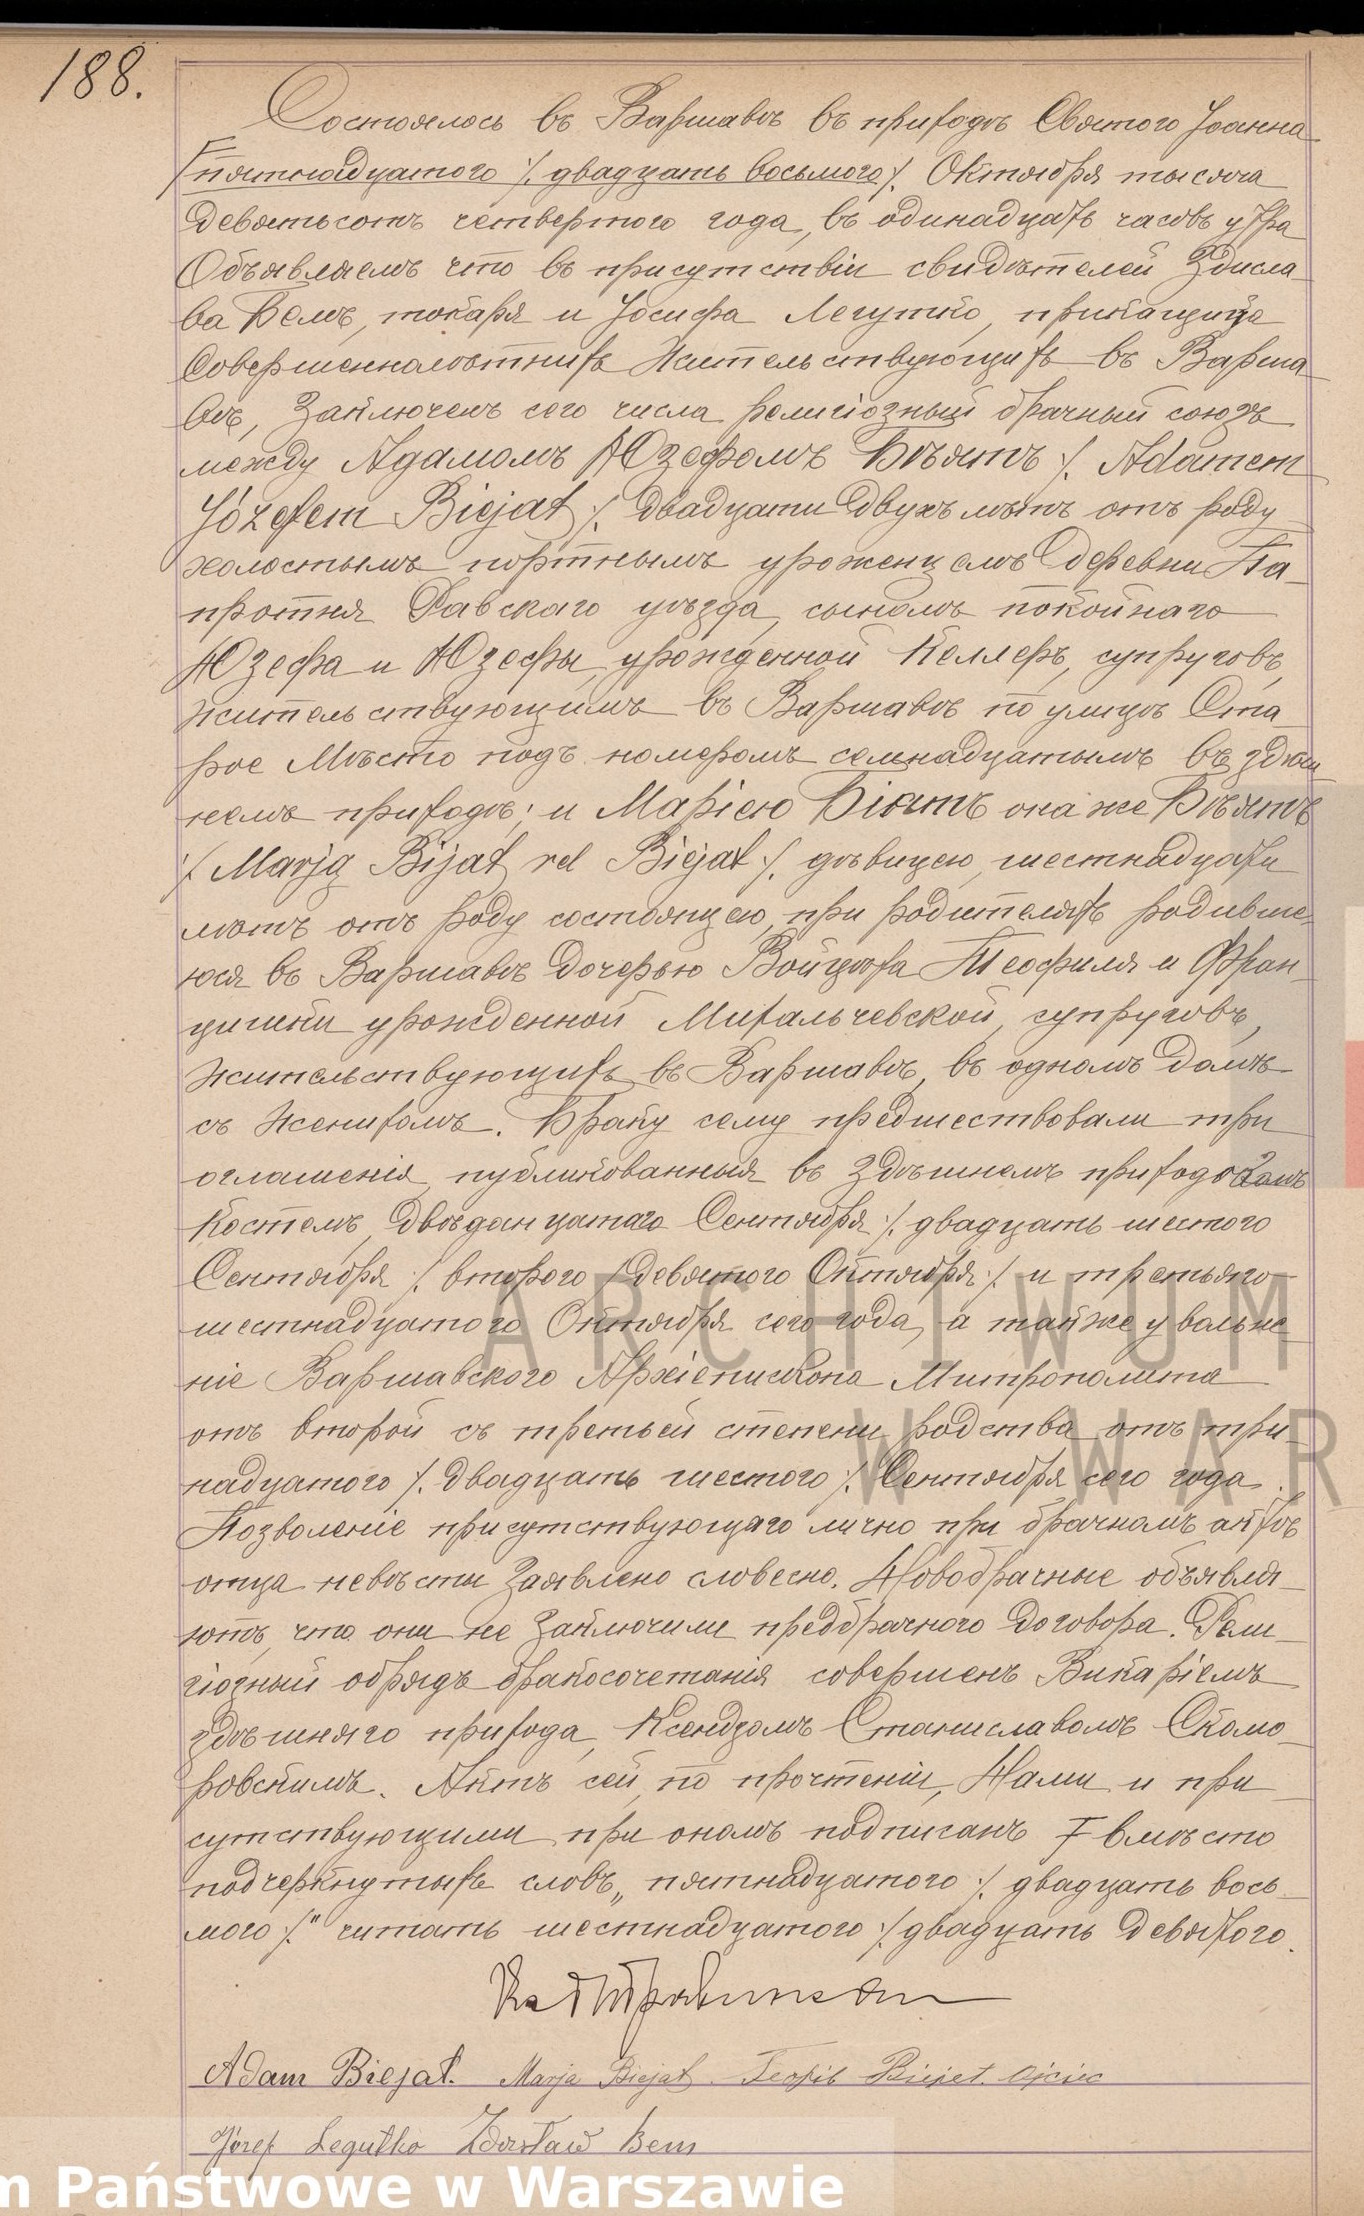 188.
Состоялось въ Варшавѣ въ приходѣ Святого Іоанна
F пятнадцатого /. двадцать восьмого /. Октября тысяча
девятьсотъ четвертого года, въ одинадцать часовъ утра
Объявляемъ что въ присутствіи свидѣтелей Здисла
ва Бемъ, токаря и Іосифа Легутко, прикащика
Совершеннолѣтнихъ Жительствующихъ въ Варша
вѣ, Заключенъ сего числа религіозный брачный союзъ
между Адамомъ Юзефомъ Бѣятъ /. Adamem
Józefem Biejat /. двадцати двухъ лѣтъ отъ роду
холостымъ портнымъ уроженцемъ деревни Па-
протня Равскаго уѣзда, сыномъ покойнаго
Юзефа и Юзефы, урожденной Келлеръ, супруговъ,
жительствующимъ въ Варшавѣ по улицѣ Ста
рое Мѣсто подъ номеромъ семнадцатымъ въ здѣш
немъ приходѣ; и Маріею Біятъ она же Бѣятъ
/. Marją Bijat vel Biejat /. дѣвицею, шестнадцати
лѣтъ отъ роду состоящею при родителяхъ родивше
юся въ Варшавѣ дочерью Войцѣха Теофиля и Фран-
цишки урожденной Михальчевской, супруговъ,
Жительствующихъ въ Варшавѣ, въ одномъ домѣ
съ Женихомъ. Браку сему предшествовали три
оглашенія, публикованныя въ здѣшнемъ приходскомъ
Костелѣ, двѣнадцатаго Сентября /. двадцать шестого
Сентября /. второго /девятого Октября /. и третьяго
шестнадцатого Октября сего года, а также увольне
ніе Варшавского Архіепископа Митрополита
отъ второй съ третьей степени родства отъ три-
надцатого /. двадцать шестого /. Сентября сего года.
Позволеніе присутствующаго лично при брачномъ актѣ
отца невѣсты Заявлено словесно. Новобрачные объявля-
ютъ, что они не Заключили предбрачного договора. Рели-
гіозный обрядъ бракосочетанія совершенъ Викаріемъ
здѣшняго прихода, Ксендзомъ Станиславомъ Скомо
ровскимъ. Актъ сей, по прочтеніи, Нами и при
сутствующими при ономъ подписанъ F вмѣсто
подчеркнутыхъ словъ „ пятнадцатого /. двадцать вось
мого /." читать шестнадцатого /. двадцать девятого.
Adam Biejat. Marja Biejat Teofil Biejat ojciec
Józef Legutko Zdzisław Bem
ARCHIWUM
W WAR
m Państwowe w Warszawie